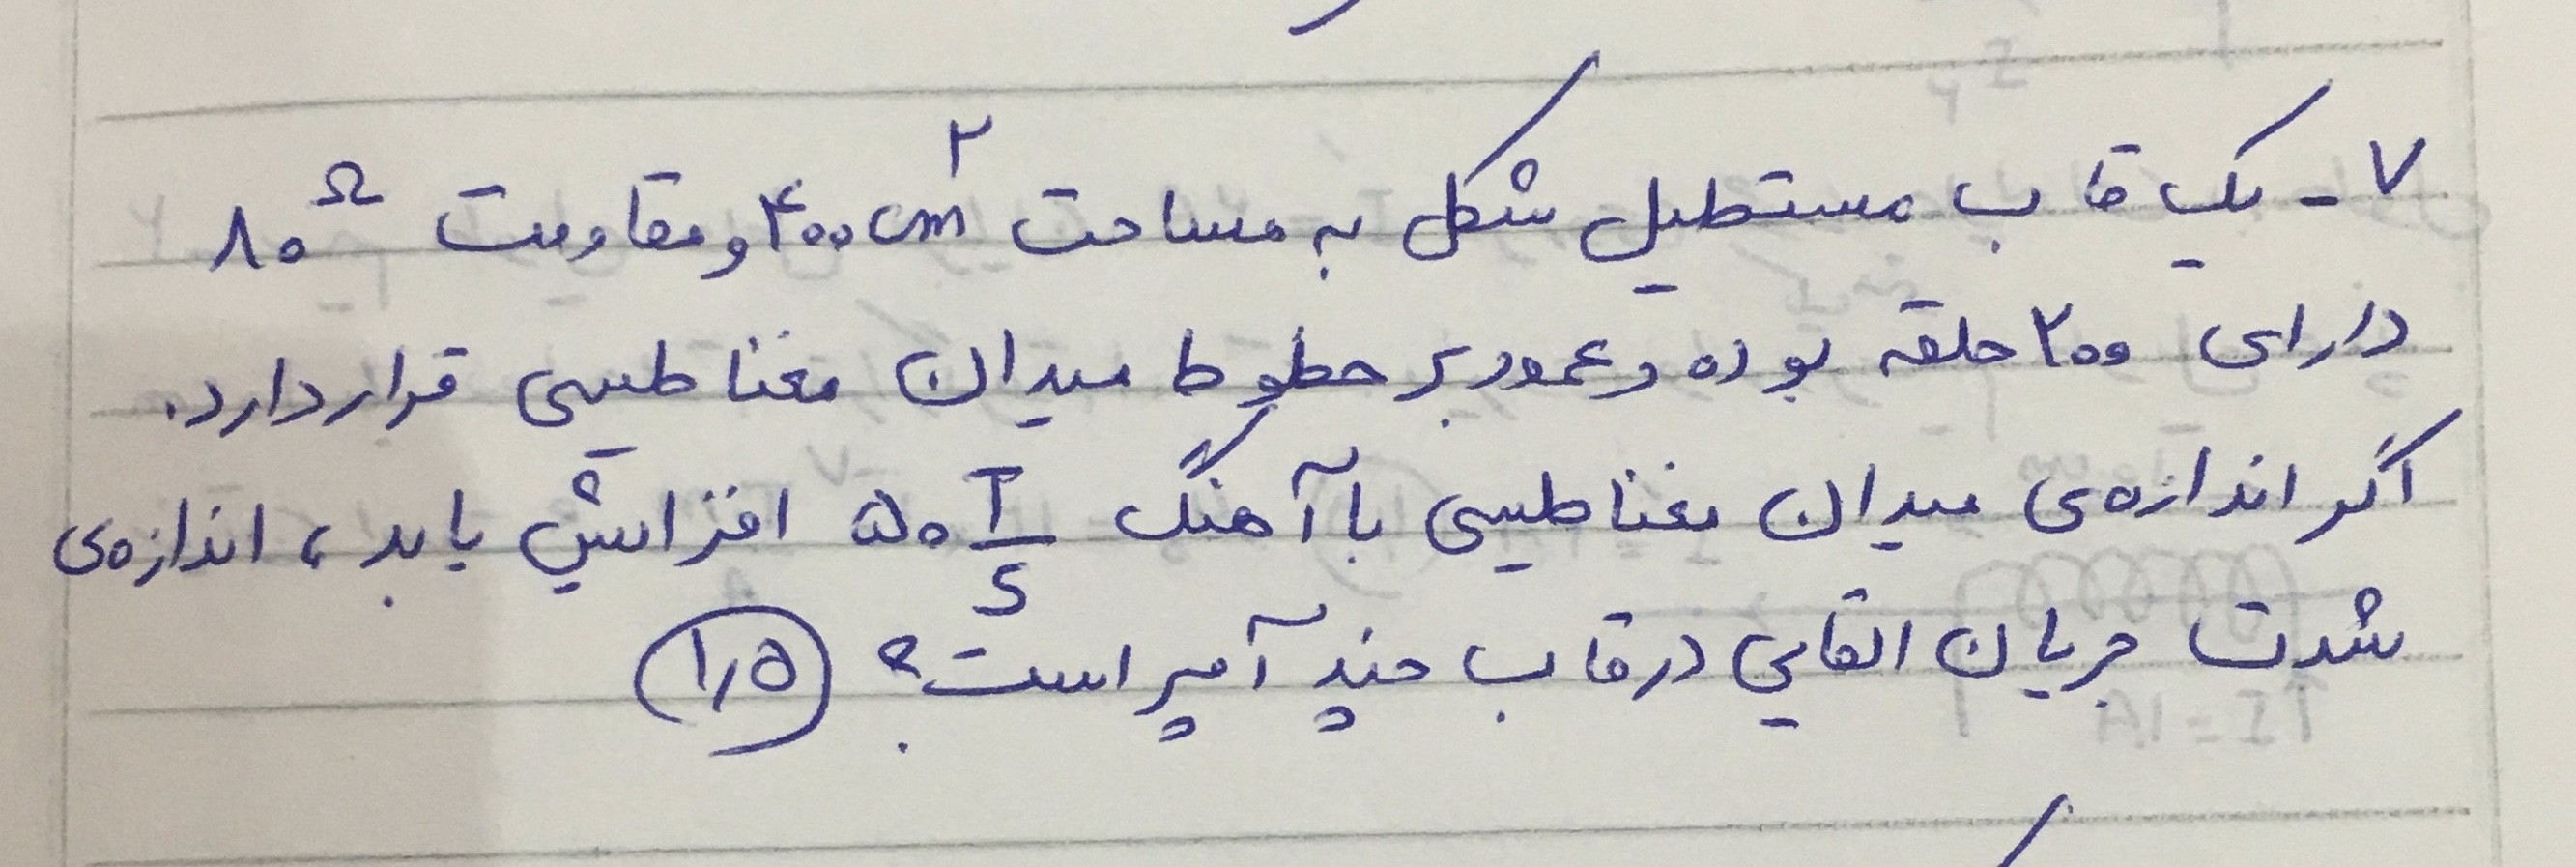 ۷- یک قاب مستطیل شکل به مساحت ۴۰۰ cm² و مقاومت ۸۰ Ω
دارای ۲۰۰ حلقه بوده و عمود بر خطوط میدان مغناطیسی قرار دارد.
اگر اندازه‌ی میدان مغناطیسی با آهنگ ۵۰ T/s افزایش یابد، اندازه‌ی
شدت جریان القایی در قاب چند آمپر است؟ (۱٫۵)